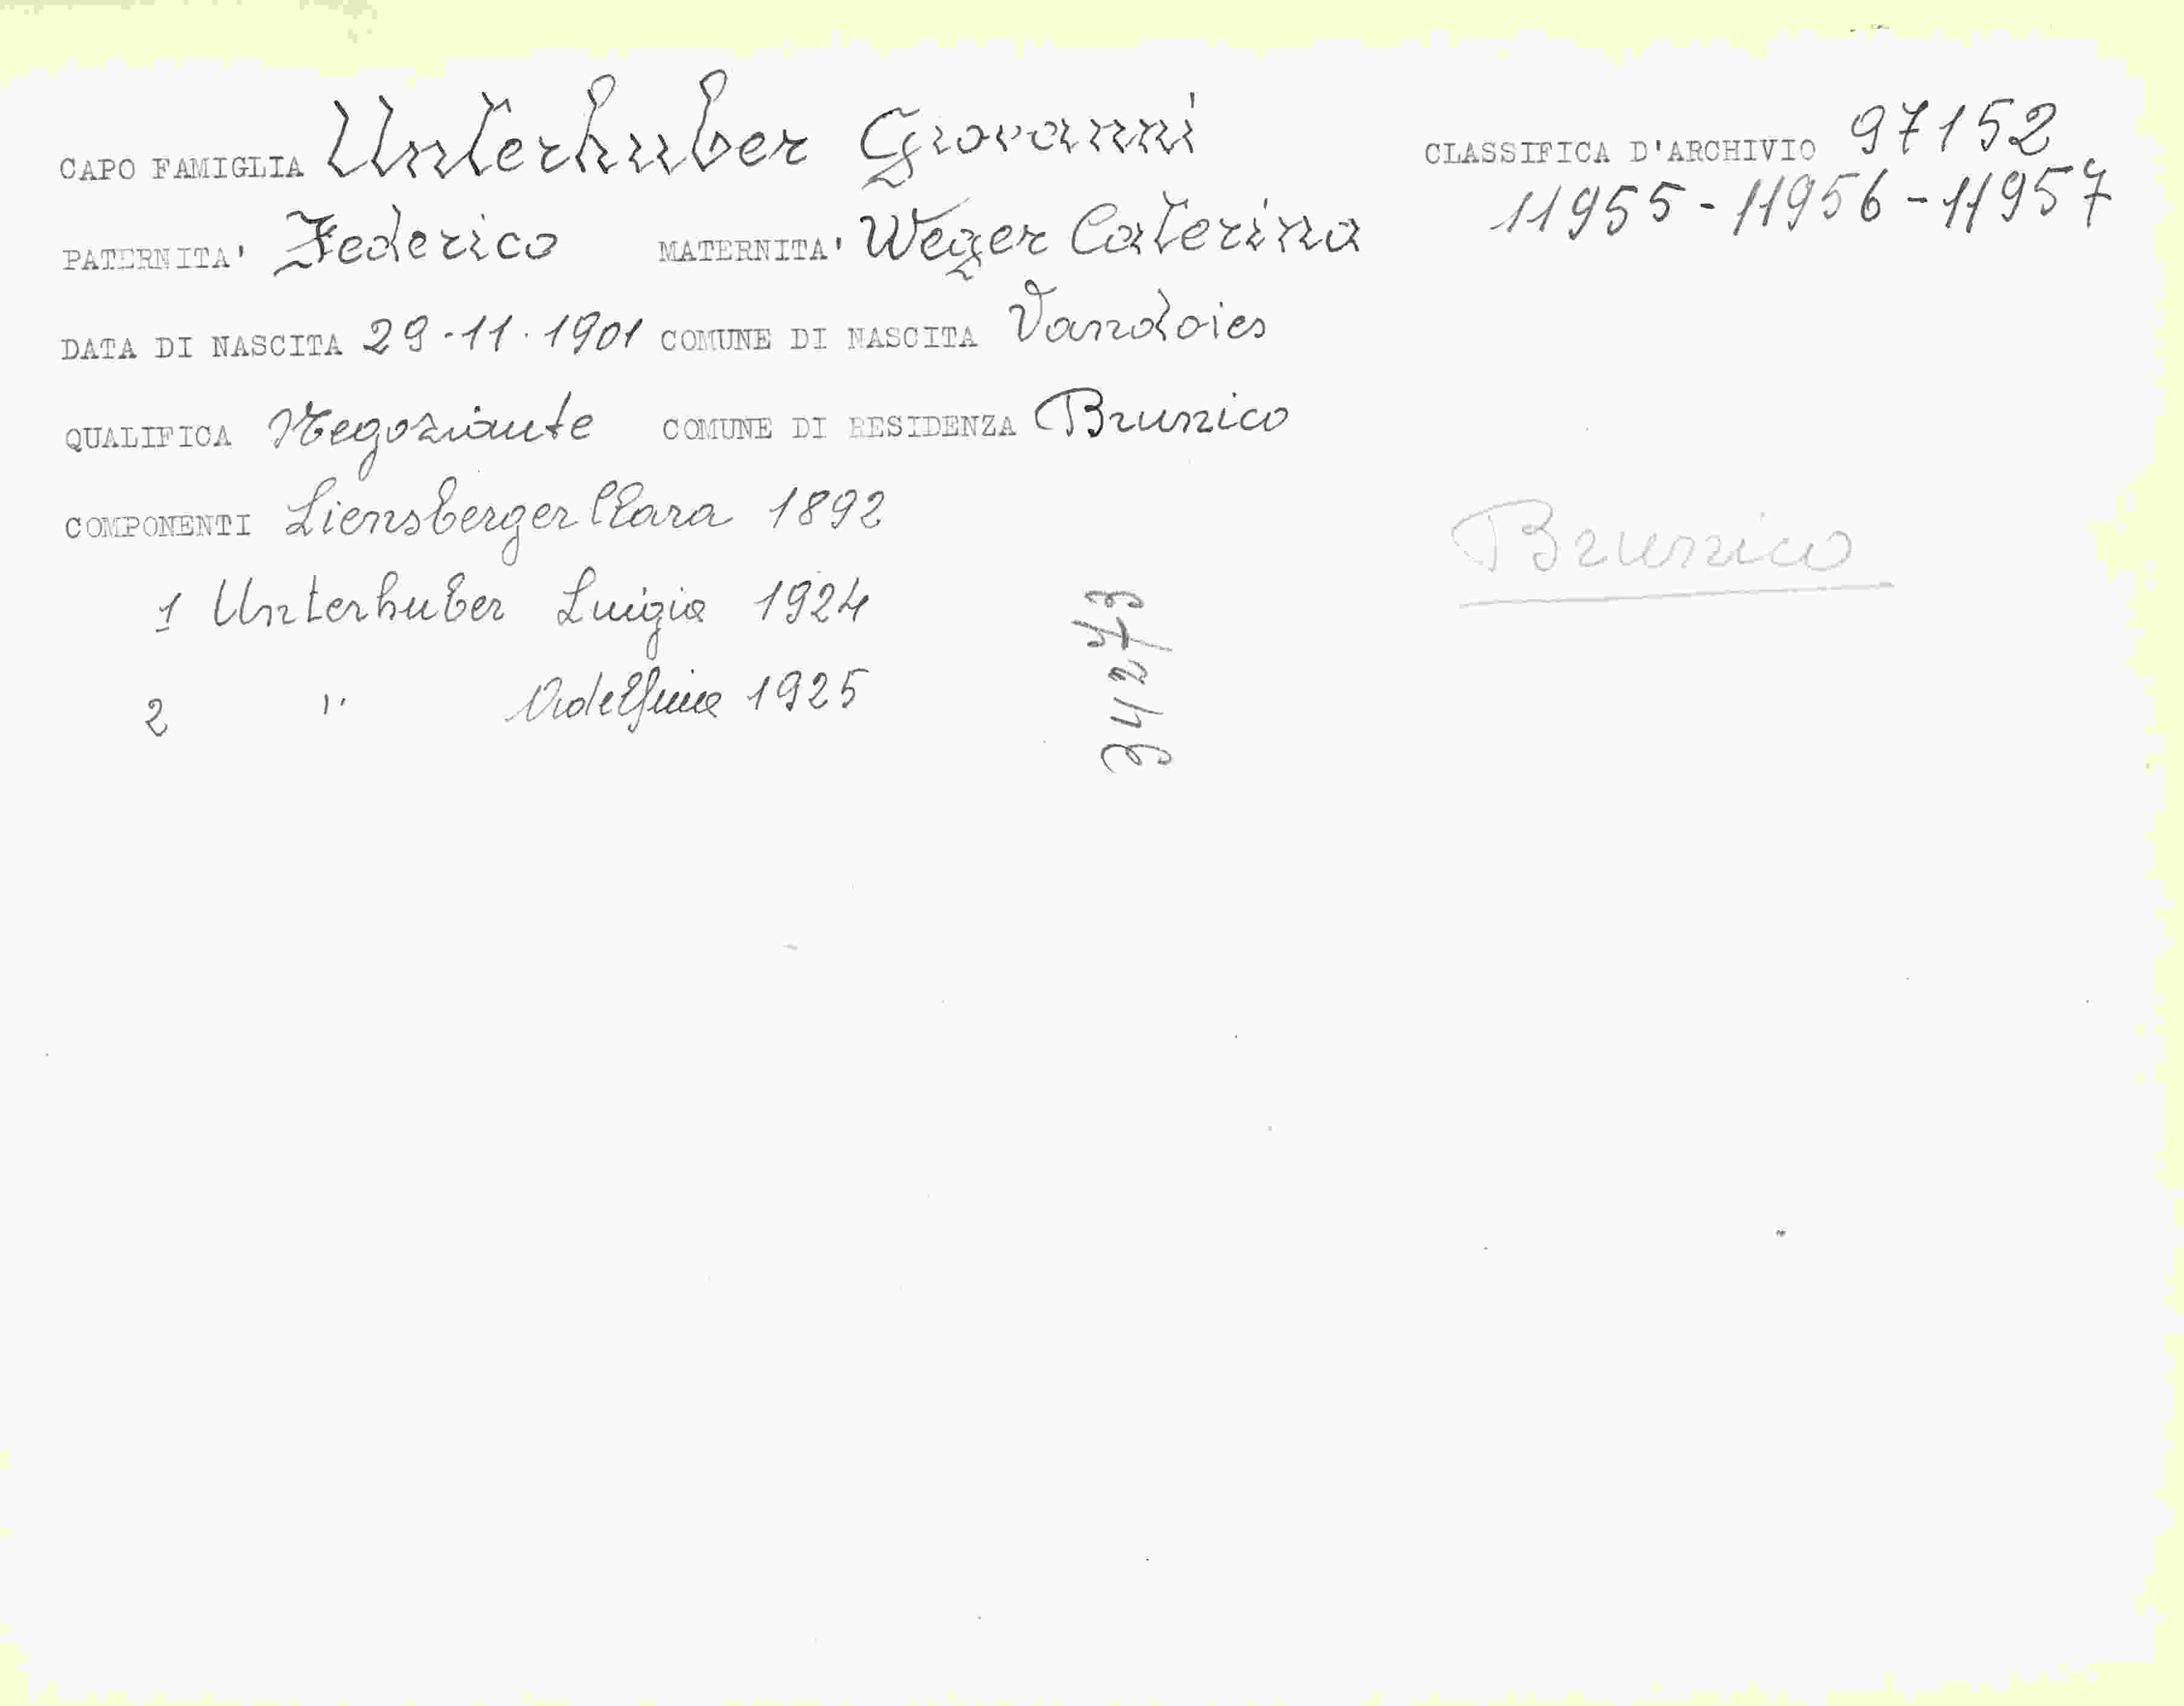 CAPO FAMIGLIA Unterhuber Giovanni
CLASSIFICA D'ARCHIVIO 97152
11955-11956-11957
PATERNITA' Federico MATERNITA' Weger Caterina
DATA DI NASCITA 29.11.1901 COMUNE DI NASCITA Vandoies
QUALIFICA Negoziante COMUNE DI RESIDENZA Brunico
COMPONENTI Liensberger Clara 1892
1 Unterhuber Luigia 1924
2 " Adelfina 1925
34273
Brunico